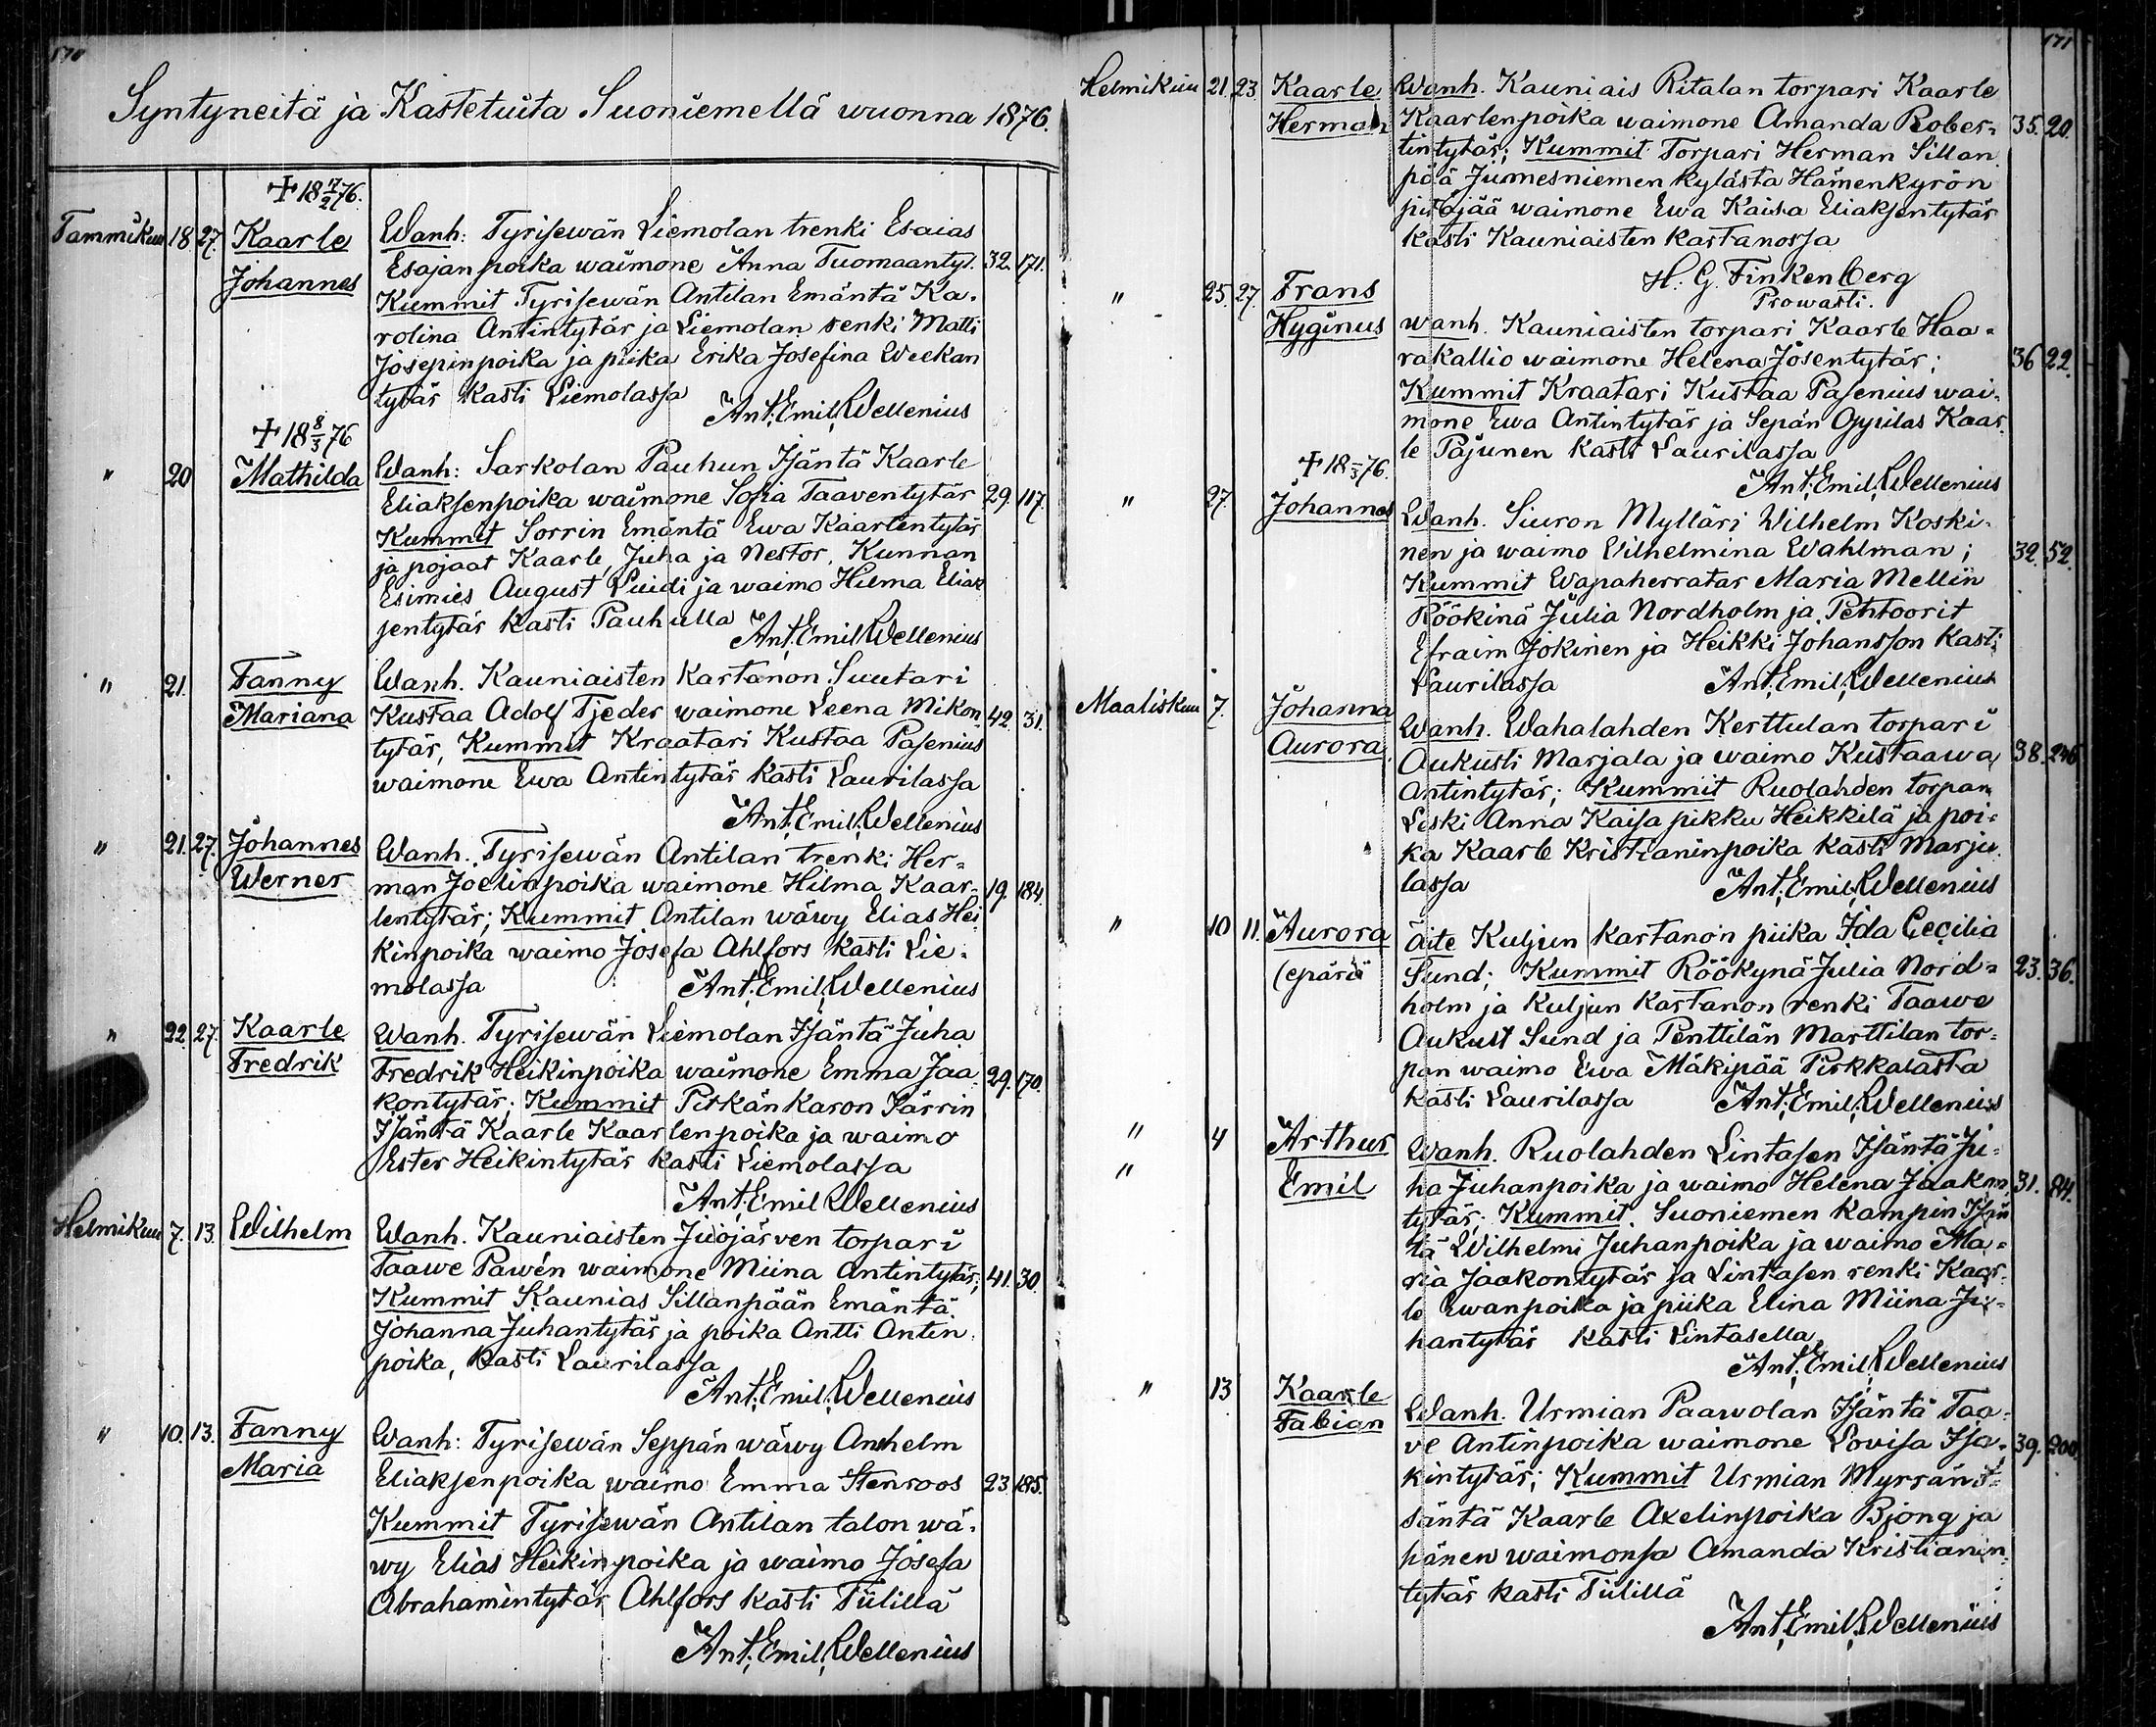 170
Syntyneitä ja Kastetuita Suoniemellä wuonna 1876.
✝ 18 17/2 76.
Tammikuu 18. 27. Kaarle Wanh: Tyrisewän Liemolan trenki Esaias
Johannes Esajanpoika waimone Anna Tuomaantyt. 32. 171.
Kummit Tyrisewän Antilan Emäntä Ka-
rolina Antintytär ja Liemolan renki Matti
Josepinpoika ja piika Erika Josefina Weekan
tytär Kasti Liemolassa
Ant. Emil. Wellenius
✝ 18 8/3 76
" 20 Mathilda Wanh: Sarkolan Pauhun Isäntä Kaarle
Eliaksenpoika waimone Sofia Taaventytär 29. 117.
Kummit Sorrin Emäntä Ewa Kaarlentytär
ja pojaat Kaarle, Juha ja Nestor, Kunnan
Esimies August Luidi ja waimo Hilma Eliak
sentytär Kasti Pauhulla
Ant. Emil Wellenius
" 21. Fanny Wanh. Kauniaisten Kartanon Suutari
Mariana Kustaa Adolf Tjeder waimone Leena Mikon- 42. 31.
tytär, Kummit Kraatari Kustaa Pasenius
waimone Ewa Antintytär Kasti Laurilassa
Ant. Emil. Wellenius
" 21. 27. Johannes Wanh. Tyrisewän Antilan trenki Her-
Werner man Joelinpoika waimone Hilma Kaar- 19. 184.
lentytär; Kummit Antilan wäwy Elias Hei
kinpoika waimo Josefa Ahlfors Kasti Lie-
molassa Ant. Emil. Wellenius
" 22. 27. Kaarle Wanh. Tyrisewän Liemolan Isäntä Juha
Fredrik Fredrik Heikinpoika waimone Emma Jaa 29. 170.
kontytär; Kummit Pitkänkaron Järrin
Isäntä Kaarle Kaarlenpoika ja waimo
Ester Heikintytär Kasti Liemolassa
Ant. Emil Wellenius
Helmikuu 7. 13. Wilhelm Wanh. Kauniaisten Juojärven torpari
Taawe Pawén waimone Miina Antintytär; 41. 30.
Kummit Kaunias Sillanpään Emäntä
Johanna Juhantytär ja poika Antti Antin
poika, Kasti Laurilassa
Ant. Emil. Wellenius
" 10. 13. Fanny Wanh: Tyrisewän Seppän wäwy Anshelm
Maria Eliaksenpoika waimo Emma Stenroos 23. 185.
Kummit Tyrisewän Antilan talon wä-
wy Elias Heikinpoika ja waimo Josefa
Abrahamintytär Ahlfors Kasti Tülillä
Ant. Emil. Wellenius
171
Helmikuu 21. 23. Kaarle Wanh. Kauniais Ritalan torpari Kaarle
Herman Kaarlenpoika waimone Amanda Rober- 35. 20.
tintytär; Kummit Torpari Herman Sillan
pää Jumesniemen kylästa Hämenkyrön
pitäjää waimone Ewa Kaisa Eliaksentytär
Kasti Kauniaisten Kartanossa
H. G. Finkenberg
Prowasti.
" 25. 27. Frans
Hyginus Wanh. Kauniaisten torpari Kaarle Haa-
rakallio waimone Helena Josentytär; 36 22.
Kummit Kraatari Kustaa Pasenius wai-
mone Ewa Antintytär ja Sepän Oppilas Kaar-
le Pajunen Kasti Laurilassa
✝ 18 /3 76. Ant. Emil. Wellenius
" 27. Johannes Wanh. Siuron Mylläri Wilhelm Koski-
nen ja waimo Wilhelmina Wahlman; 32. 52.
Kummit Wapaherratar Maria Mellin
Röökinä Julia Nordholm ja Pehtoorit
Efraim Jokinen ja Heikki Johansson Kasti
Laurilassa Ant. Emil. Wellenius
Maaliskuu 7. Johanna Wanh. Wahalahden Kerttulan torpari
Aurora Aukusti Marjala ja waimo Kustaawa 38. 246
Antintytär; Kummit Ruolahden torpan
Leski Anna Kaisa pikku Heikkilä ja poi-
ka Kaarle Kristianinpoika Kasti Marju
lassa Ant. Emil. Wellenius
" 10 11. Aurora äite Kuljun Kartanon piika Ida Cecilia
(epäriä Sund; Kummit Röökynä Julia Nord- 23. 36.
holm ja Kuljun Kartanon renki Taawe
Aukust Sund ja Penttilän Marttilan tor-
pan waimo Ewa Mäkipää Pirkkalasta
Kasti Laurilassa Ant. Emil. Wellenius
" 4 Arthur Wanh. Ruolahden Lintasen Isäntä Ju-
" Emil ha Juhanpoika ja waimo Helena Jaakon 31. 84.
tytär; Kummit. Suoniemen Kampin Isän
tä Wilhelmi Juhanpoika ja waimo Ma-
ria Jaakontytär ja Lintasen renki Kaar-
le Ewanpoika ja piika Elina Miina Ju-
hantytär Kasti Lintasella
Ant. Emil. Wellenius
" 13 Kaarle Wanh. Urmian Paawolan Isäntä Taa-
Fabian ve Antinpoika waimone Lovisa Isa- 39. 200.
kintytär; Kummit Urmian Myrrän I-
säntä Kaarle Axelinpoika Bjong ja
hänen waimonsa Amanda Kristianin-
tytär Kasti Tülillä
Ant. Emil. Wellenius